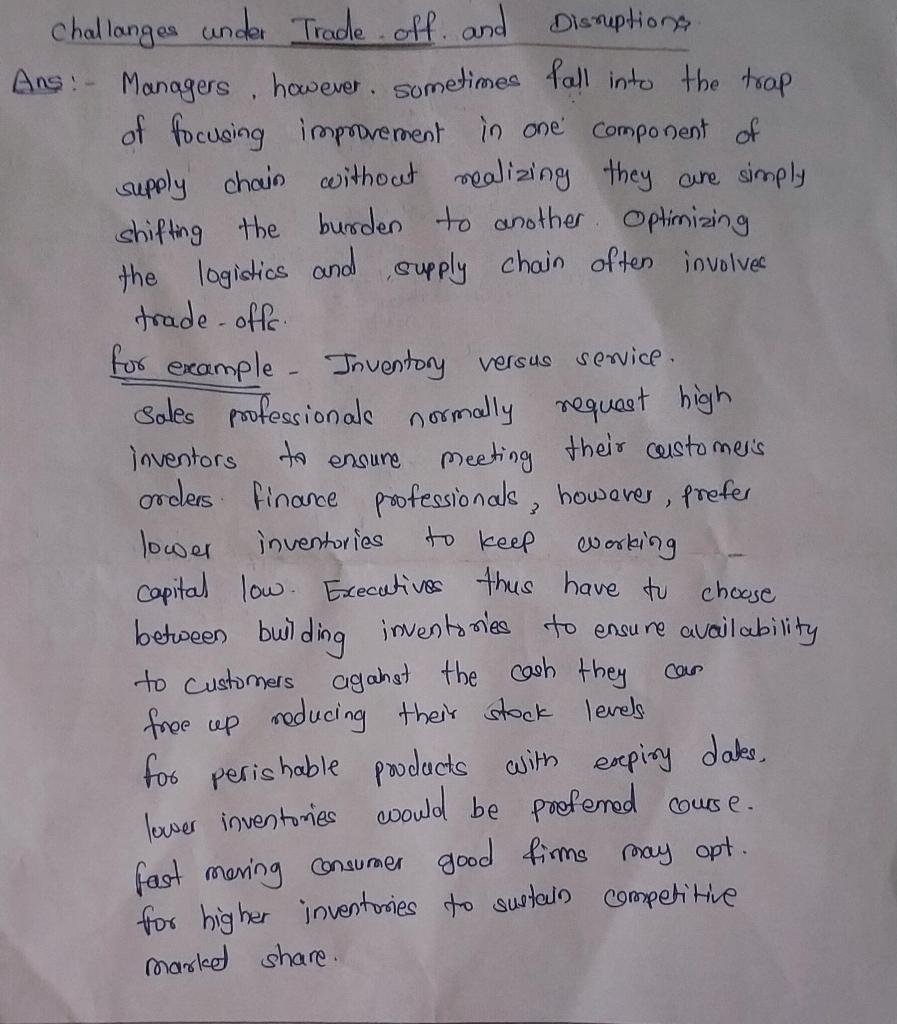 challanges under Trade-off. and Disruptions
Ans:- Managers, however. sometimes fall into the trap
of focusing improvement in one component of
supply chain without realizing they are simply
shifting the burden to another. Optimizing
the logistics and supply chain often involves
trade-offs.
for example - Inventory versus service.
Sales professionals normally request high
inventors to ensure meeting their customer's
orders. finance professionals, however, prefer
lower inventories to keep working
capital low. Executives thus have to choose
between building inventories to ensure availability
to customers against the cash they can
free up reducing their stock levels
for perishable products with expiry dates,
lower inventories would be preferred course.
fast moving consumer good firms may opt.
for higher inventories to sustain competitive
market share.